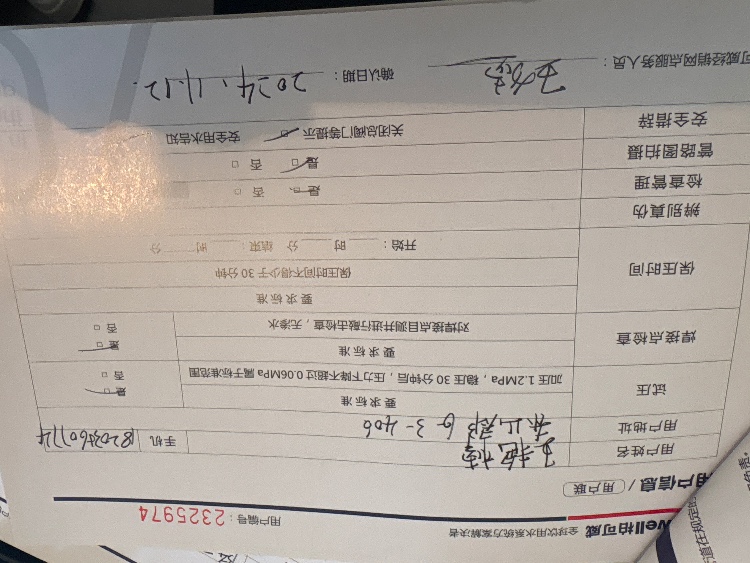 well柏可威 全球饮用水系统方案解决者
用户编号：2325974
用户信息/（用户联）
用户姓名
手机 18203460774
用户地址 6-3-406
试压
要求标准
加压1.2MPa，稳压30分钟后，压力下降不超过0.06MPa属于标准范围
是□
否□
焊接点检查
要求标准
对焊接点目测并进行敲击检查，无渗水
是□
否□
保压时间
要求标准
保压时间不得少于30分钟
开始：____时____分 结束：____时____分
辨别真伪
检查管理
是□ 否□
管路图拍摄
是□ 否□
安全措辞
关闭总阀门等提示□ 安全用水告知
可威经销网点服务人员：
确认日期：2024.11.12.